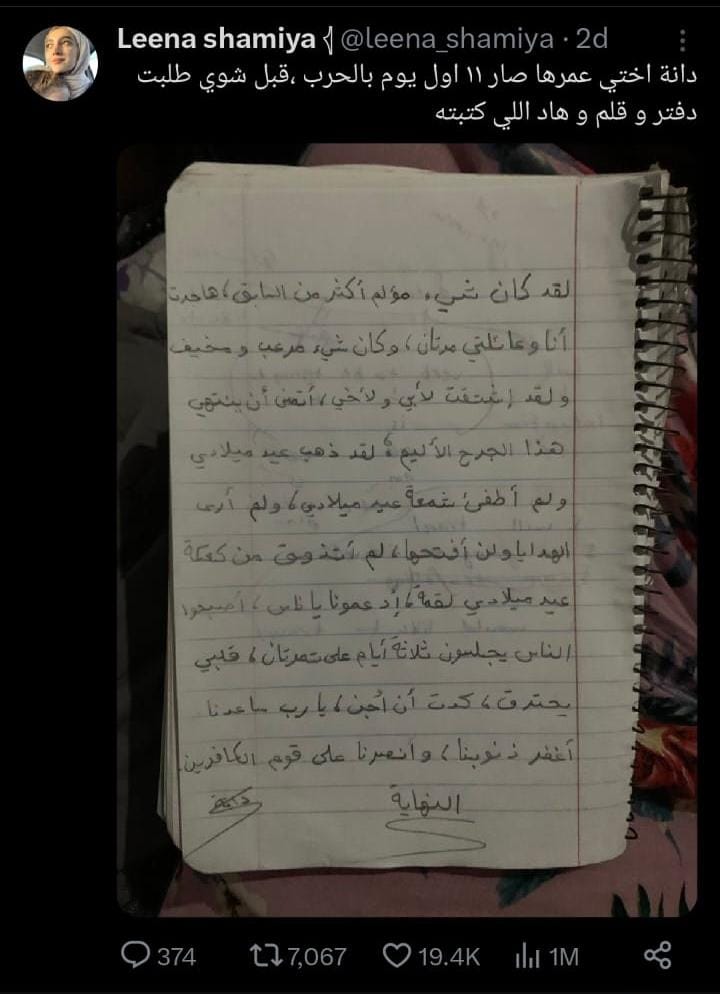 Leena shamiya @leena_shamiya · 2d
دانة اختي عمرها صار ١١ اول يوم بالحرب ،قبل شوي طلبت
دفتر و قلم و هاد اللي كتبته
لقد كان شيء مؤلم أكثر من السابق، هاجرت
أنا وعائلتي مرتان، وكان شيء مرعب و مخيف
و لقد إشتقت لأبي ولأخي، أتمنى أن ينتهي
هذا الجرح الأليم، لقد ذهب عيد ميلادي
ولم أطفئ شمعة عيد ميلادي، ولم أرى
الهدايا ولن أفتحها، لم أتذوق من كعكة
عيد ميلادي لقمة، إدعمونا يا ناس، أصبحوا
الناس يجلسون ثلاثة أيام على تمرتان، قلبي
يحترق، كدت أن أجن، يا رب ساعدنا
أغفر ذنوبنا، وانصرنا على قوم الكافرين.
النهاية
374 7,067 19.4K 1M